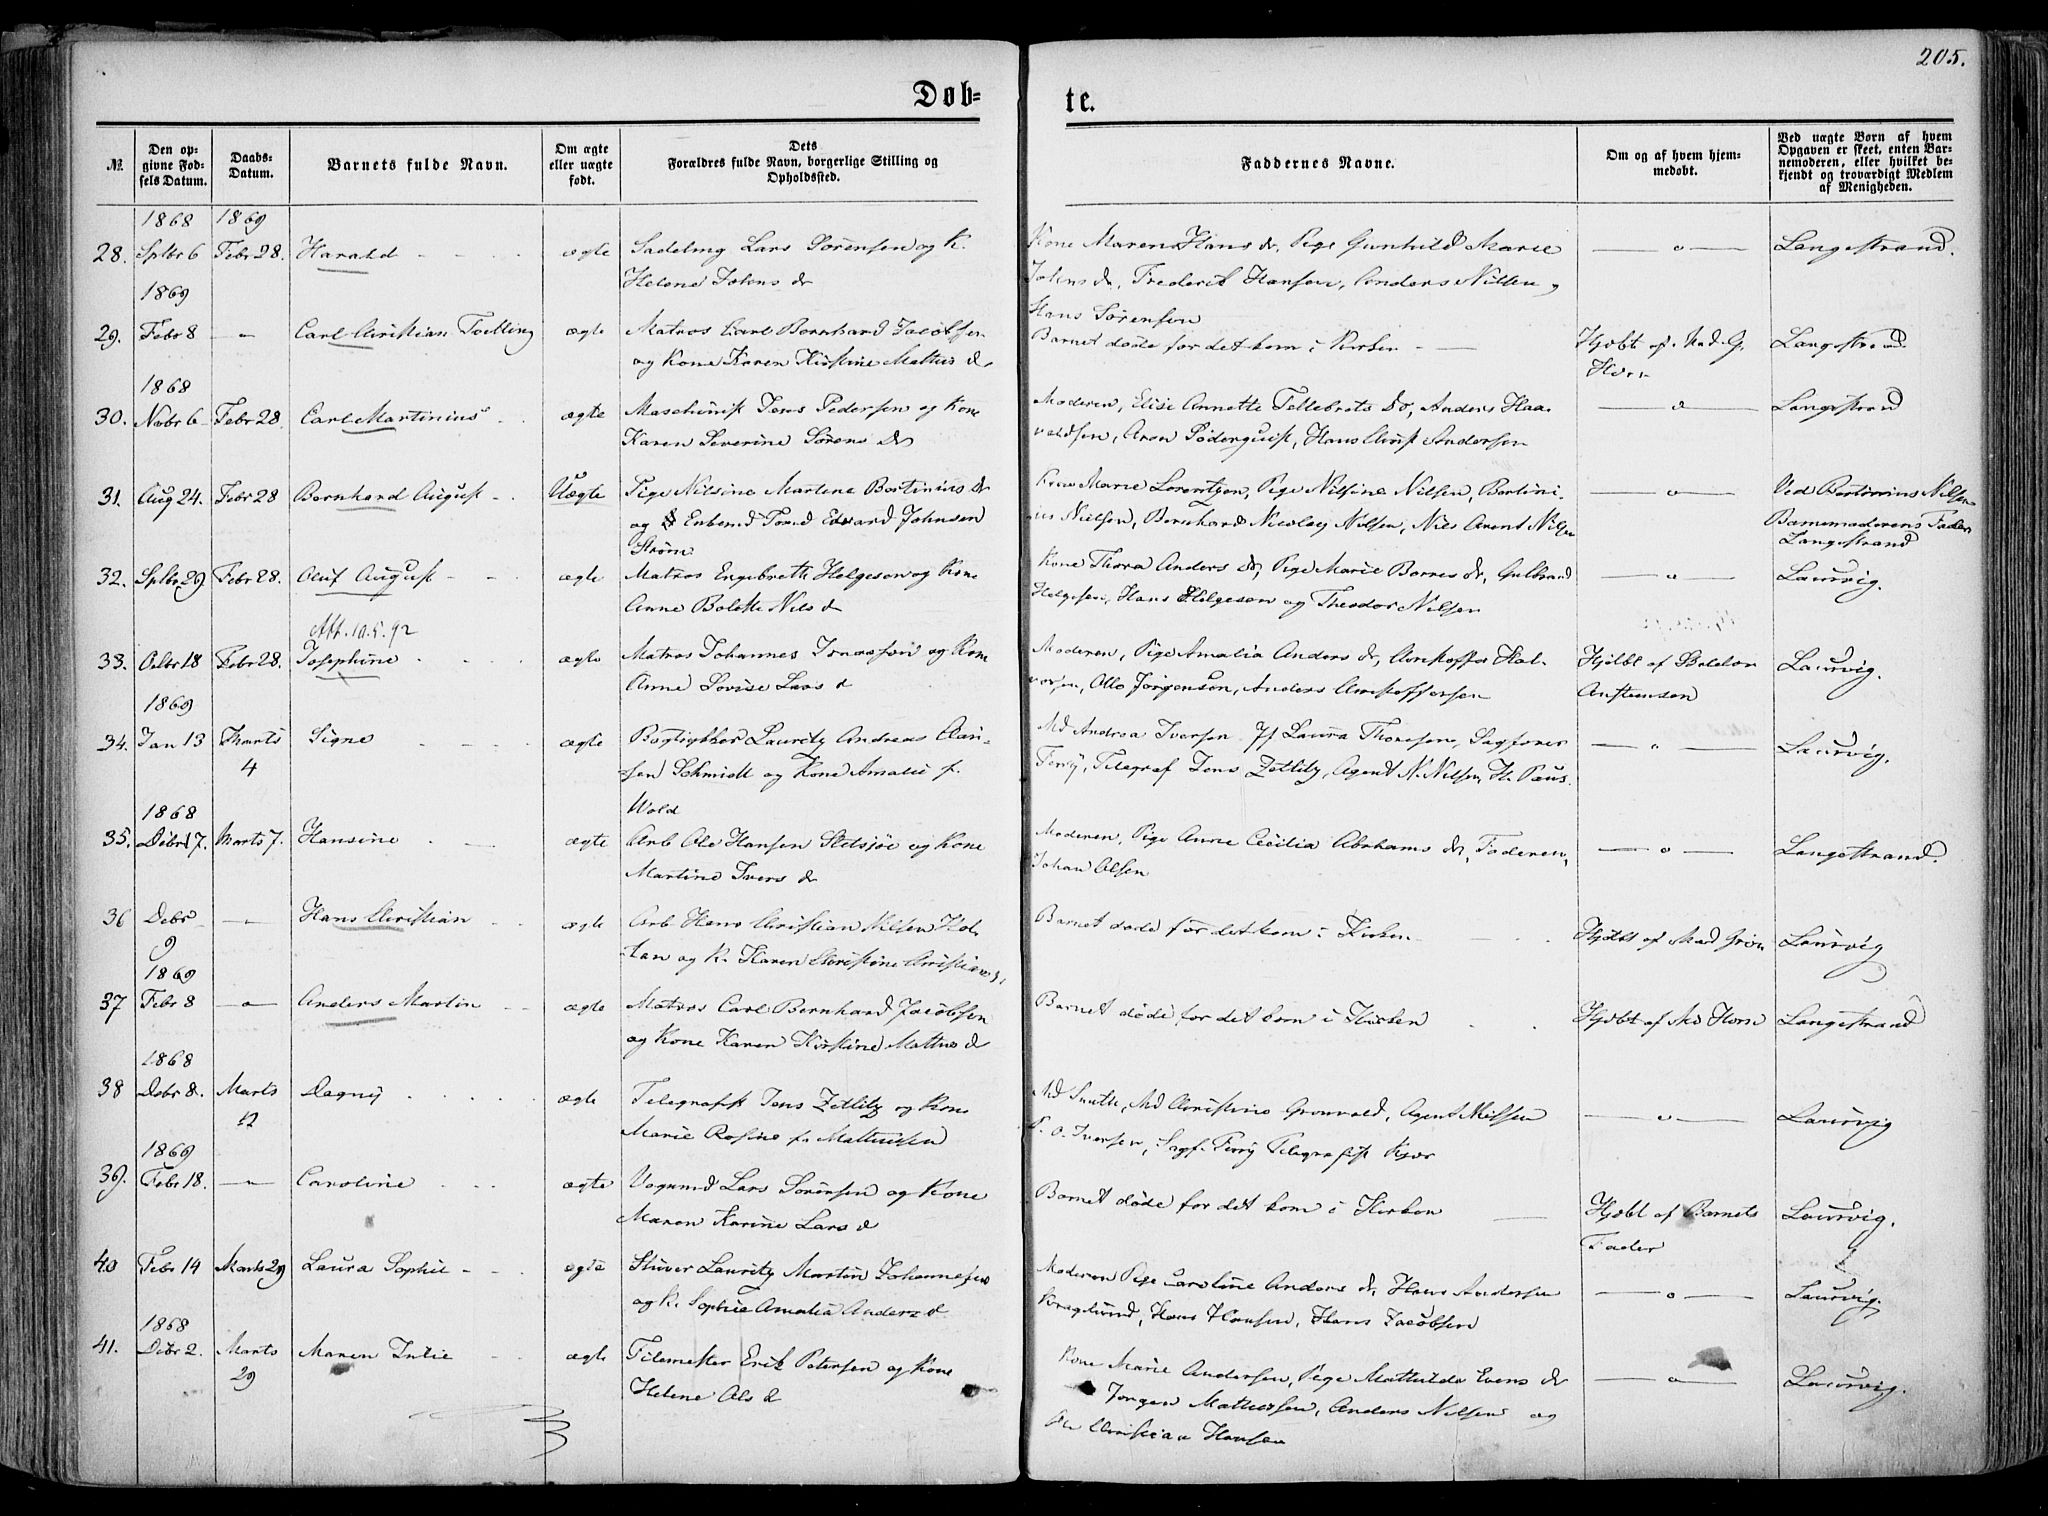 205.
Døb-
te.
№
Den op-
givne Fød-
sels Datum.
Daabs-
Datum.
Barnets fulde Navn.
Om ægte
eller uægte
født.
Dets
Forældres fulde Navn, borgerlige Stilling og
Opholdssted.
Faddernes Navne.
Om og af hvem hjem-
medøbt.
Ved uægte Børn af hvem
Opgaven er skeet, enten Bar-
nemoderen, eller hvilket be-
kjendt og troværdigt Medlem
af Menigheden.
1868 1869
28. Sptbr 6 Febr 28. Harald ægte Lars Sørensen og K. Kone Maren Hans dr, Pige Gunhild Marie Langestrand.
Helene Johns dr Johns dr, Frederik Hansen, Anders Nilsen og
1869 Hans Sørensen
29. Febr 8 Carl Christian Tolling ægte Matros Carl Bernhard Jacobsen Barnet døde før det kom i Kirken Hjøbt af Mad G. Langestrand
og Kone Karen Kirstine Mathis dr Horn
1868
30. Novbr 6 Febr 28 Carl Martinius ægte Maschinist Jens Pedersen og Kone Moderen, Elise Annette Tellefs Dr, Anders Haa- Langestrand
Karen Severine Sørens Dr valdsen, Aron Söderquist, Hans Christ Andersen
31. Aug 24. Febr 28 Bernhard August Uægte Pige Nilsine Martene Bertinius dr Kone Marie Lorentzen, Pige Nilsine Nilsen, Bertini- Ved Bertinius Nilsen
og Enbemd Edvard Johnsen us Nielsen, Bernhard Nicolay Nilsen, Nils Arent Nilsen Barnemoderens Fader
Strøm Langestrand
32. Sptbr 29 Febr 28. Oluf August ægte Matros Engebreth Helgesen og Kone Kone Thora Anders dr, Pige Marie Bornes dr, Gulbrand Laurvig.
Anne Bolette Nils dr Helgesen, Hans Helgesen og Theodor Nilsen
Att. 10.5.92
33. Octbr 18 Febr 28. Josephine ægte Matros Johannes Isaksen og Kone Moderen, Pige Amalia Anders dr, Christoffer Hal- Hjdbt af Laurvig.
Anne Lovise Lars d vorsen, Otto Jørgensen, Anders Christoffersen
1869
34. Jan 13 Marts Signe ægte Bogtrykker Lauritz Andreas Clau- Md Andrea Iversen Jf Laura Thoresen, Sagfører Laurvig.
4 sen Schmidt og Kone Amalie f. Ferry, Telegraf Jens Zetlitz, Agent N. Nilsen, H. Paus.
1868 Wold
35. Debr 17. Marts 7. Hansine ægte Arb Ole Hansen og Kone Moderen, Pige Anne Cecilia Abrahams dr, Faderen, Langestrand.
Martine Ivers dr Johan Olsen
36 Debr Hans Christian ægte Arb Hans Christian Nilsen Barnet døde før det kom i Kirken Hjdbt af Mad Laurvig
9 og K. Karen Christine
1869
37 Febr 8 Anders Martin ægte Matros Carl Bernhard Jacobsen Barnet døde før det kom i Kirken Hjdbt af Md Horn Langestrand
og Kone Karen Kirstine Mathis d
1868
38 Debr 8. Marts Dagny ægte Telegrafist Jens Zetlitz og Kone Md Smith, Md Christine Gronvold, Agent Nilsen Laurvig
12 Marie Rosine f. Mathiesen P. O. Iversen, Sagf. Ferry Telegrafist Kjær
1869
39. Febr 18. Caroline ægte Vognmd Lars Sørensen og Kone Barnet døde før det kom i Kirken Hjdbt af Barnets Laurvig.
Maren Karine Lars d Fader
40 Febr 14 Marts 29 Laura Sophie ægte Stuver Lauritz Martin Johannesen Moderen Pige Caroline Anders dr, Hans Andersen Laurvig.
og K. Sophie Amalia Anders d Kragelund, Hans Hansen, Hans Jacobsen
1868
41. Debr 2. Marts Maren Julie ægte Erik Petersen og Kone Kone Marie Andersen, Pige Mathilde Evens dr Laurvig.
29 Helene Ols d Jørgen Mathiesen, Anders Nilsen og
Ole Christian Hansen